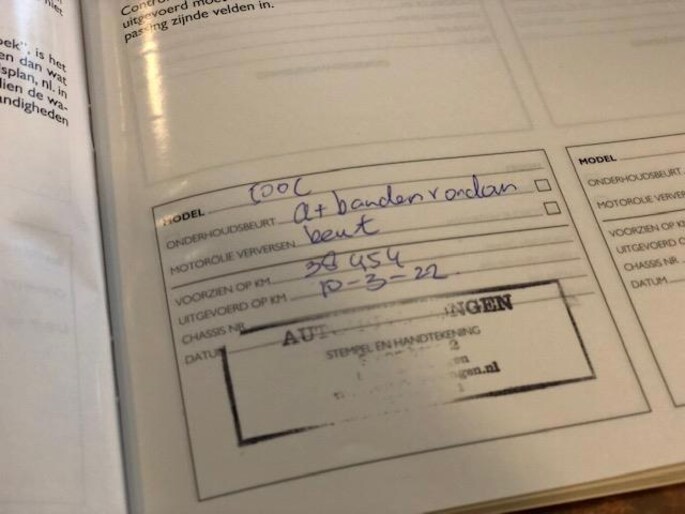 niet
oek", is het
en dan wat
splan, nl. in
lien de wa-
ndigheden
uitgevoerd
passing zijnde velden in.
MODEL 500C
ONDERHOUDSBEURT a+ banden rondom
MOTOROLIE VERVERSEN beurt
VOORZIEN OP KM
UITGEVOERD OP KM 38 454
CHASSIS NR. 10-3-22
DATUM
STEMPEL EN HANDTEKENING
NGEN
2
en
gen.nl
1
MODEL
ONDERHOUDSBEURT
MOTOROLIE VERVER
VOORZIEN OP KM
UITGEVOERD O
CHASSIS NR
DATUM